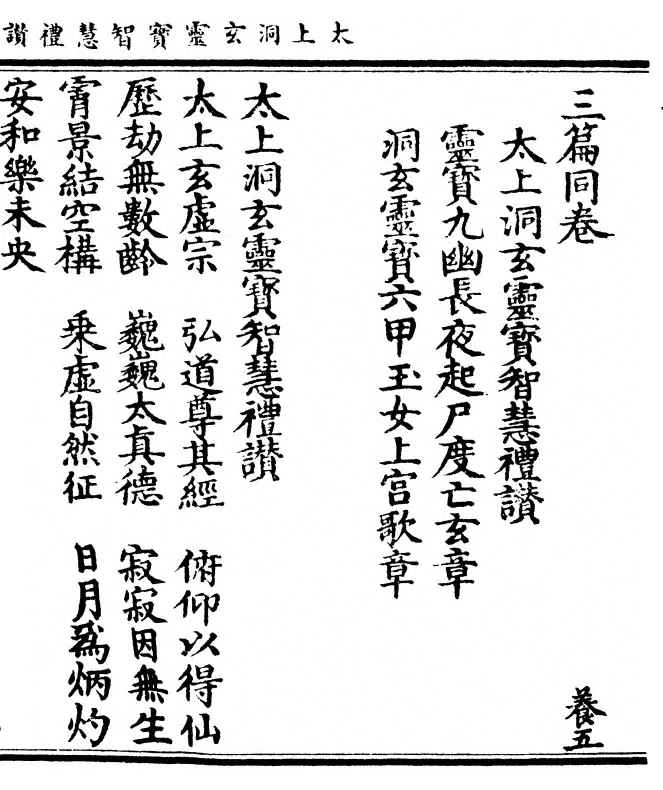 太上洞玄靈寶智慧禮讃
三篇同卷 養五
太上洞玄靈寶智慧禮讃
靈寶九幽長夜起尸度亡玄章
洞玄靈寶六甲玉女上宮歌章
太上洞玄靈寶智慧禮讃
太上玄虛宗 弘道尊其經 俯仰以得仙
歷劫無數齡 巍巍太真德 寂寂因無生
霄景結空構 乗虛自然征 日月為炳灼
安和樂未央